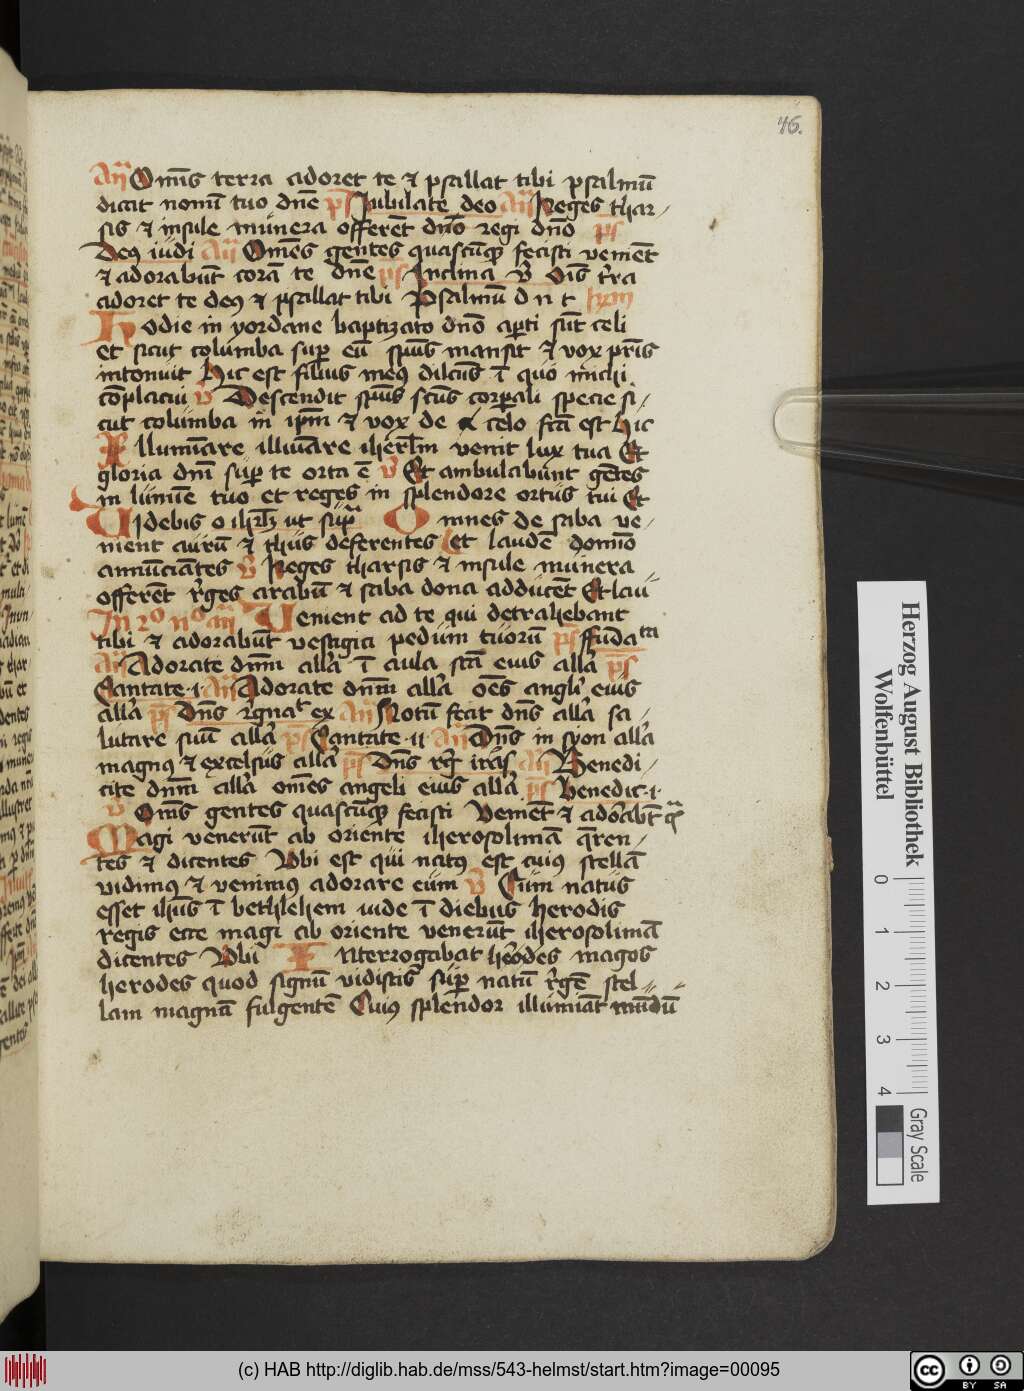 46.
Añ Om̄s terra adoret te et psallat tibi psalmū
dicat nomī tuo dn̄e ps̄ Jubilate deo Añ Reges thar-
sis et insule munera offerēt dn̄o regi dn̄o ps̄
Deus iudi Añ Omēs gentes quascūque fecisti veniēt
et adorabūt corā te dn̄e ps̄ Inclina v̄ Oīs tr̄ra
adoret te deus et psallat tibi Psalmū d n t hym
Hodie in yordane baptizato dn̄o ap̱ti sūt celi
et sicut columba sup̱ eū spūs mansit et vox pr̄is
intonuit Hic est filius meus dilc̄us ī quo michi
cōplacui v̄ Descendit spūs sc̄us corp̱ali specie si-
cut columba in ip̄m et vox de celo fc̄a est Hic
Illuminare illuīare iherl̄m venit lux tua Et
gloria dn̄i sup̱ te orta ē v̄ Et ambulabunt gētes
in lumīe tuo et reges in splendore ortus tui Et
Uidebis o ihrlz ut sup̄ Omnes de saba ve-
nient aurū et thus deferentes Et laudē domīo
annūciātes v̄ Reges tharsis et insule munera
offerēt r̄ges arabū et saba dona adducēt Et lau
In 2o no añ Uenient ad te qui detrahebant
tibi et adorabūt vestigia pedum tuorū ps̄ ffūdata
Añ Adorate dn̄m all̄a ī aula sc̄ā eius all̄a ps̄
Cantate·i· Añ Adorate dn̄m all̄a oēs angl̄i eius
all̄a ps̄ Dn̄s r̄gnat ex Añ Notū fecit dn̄s all̄a sa-
lutare suū all̄a ps̄ Cantate·ii Añ Dn̄s in syon all̄a
magnus et excelsus all̄a ps̄ Dn̄s rḡ iras Añ Benedi-
cite dn̄m all̄a omēs angeli eius all̄a ps̄ benedic·i·
v̄ Om̄s gentes quascūque fecisti Veniēt et adorabūt
Magi venerūt ab oriente iherosolimā q̄ren-
tes et dicentes Vbi est qui natus est cuius stellā
vidimus et venimus adorare eum v̄ Cum natus
esset ihūs ī bethlehem iude ī diebus herodis
regis ecce magi ab oriente venerūt iherosolimā
dicentes Vbi Interrogabat herodes magos
herodes quod signū vidistis sup̱ natū r̄gē stel-
lam magnā fulgentē Cuius splendor illumīat mūdū
Herzog August Bibliothek
Wolfenbüttel
0 1 2 3 4
Gray Scale
(c) HAB http://diglib.hab.de/mss/543-helmst/start.htm?image=00095
cc BY SA